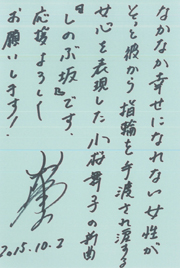 なかなか幸せになれない女性が
そっと彼から指輪を手渡され涙する
女心を表現した小桜舞子の新曲
「しのぶ坂」です。
応援よろしく
お願いします!
2015.10.2